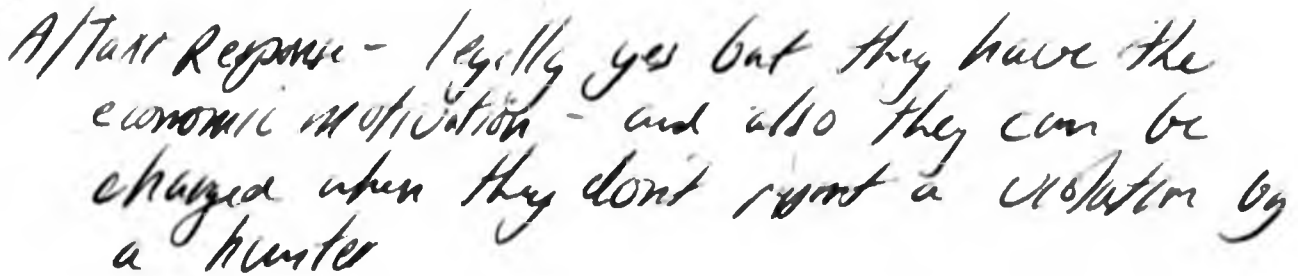 Response - legally yes but they have the
economic motivation - and also they can be
charged when they dont report a violation by
a hunter